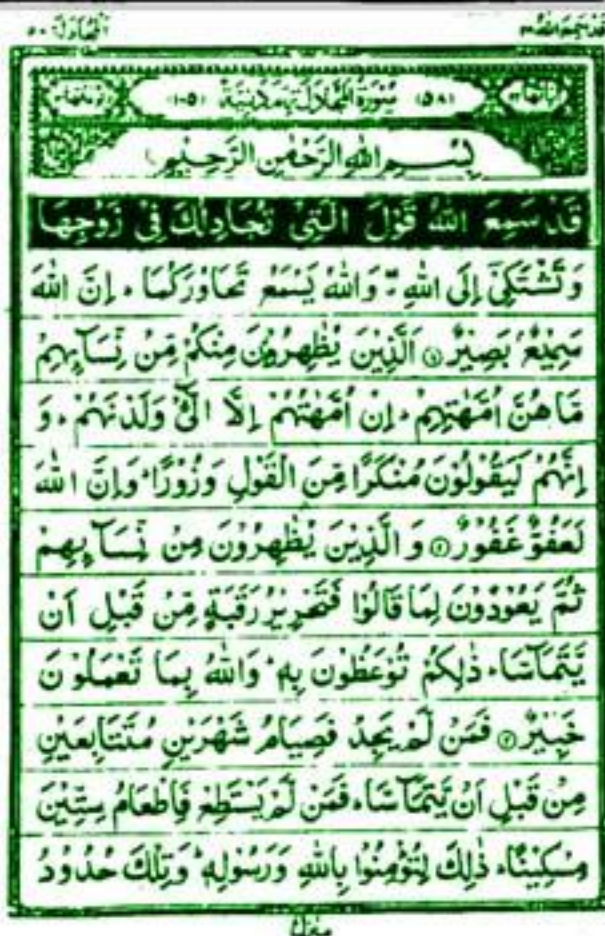 قد سمع اللہ ۲۸ المجادلۃ ۵۸
اٰیاتھا ۲۲ (۵۸) سُوْرَةُ الْمُجَادَلَةِ مَدَنِيَّةٌ (۱۰۵) رکوعاتھا ۳
بِسْمِ اللهِ الرَّحْمٰنِ الرَّحِيْمِ
قَدْ سَمِعَ اللهُ قَوْلَ الَّتِيْ تُجَادِلُكَ فِيْ زَوْجِهَا
وَتَشْتَكِيْٓ اِلَى اللهِ ۖ وَاللهُ يَسْمَعُ تَحَاوُرَكُمَا ؕ اِنَّ اللهَ
سَمِيْعٌۢ بَصِيْرٌ ۝۱ اَلَّذِيْنَ يُظٰهِرُوْنَ مِنْكُمْ مِّنْ نِّسَآىِٕهِمْ
مَّا هُنَّ اُمَّهٰتِهِمْ ؕ اِنْ اُمَّهٰتُهُمْ اِلَّا الّٰٓـِٔيْ وَلَدْنَهُمْ ؕ وَ
اِنَّهُمْ لَيَقُوْلُوْنَ مُنْكَرًا مِّنَ الْقَوْلِ وَزُوْرًا ؕ وَاِنَّ اللهَ
لَعَفُوٌّ غَفُوْرٌ ۝۲ وَ الَّذِيْنَ يُظٰهِرُوْنَ مِنْ نِّسَآىِٕهِمْ
ثُمَّ يَعُوْدُوْنَ لِمَا قَالُوْا فَتَحْرِيْرُ رَقَبَةٍ مِّنْ قَبْلِ اَنْ
يَّتَمَآسَّا ؕ ذٰلِكُمْ تُوْعَظُوْنَ بِهٖ ؕ وَاللهُ بِمَا تَعْمَلُوْنَ
خَبِيْرٌ ۝۳ فَمَنْ لَّمْ يَجِدْ فَصِيَامُ شَهْرَيْنِ مُتَتَابِعَيْنِ
مِنْ قَبْلِ اَنْ يَّتَمَآسَّا ؕ فَمَنْ لَّمْ يَسْتَطِعْ فَاِطْعَامُ سِتِّيْنَ
مِسْكِيْنًا ؕ ذٰلِكَ لِتُؤْمِنُوْا بِاللهِ وَرَسُوْلِهٖ ؕ وَتِلْكَ حُدُوْدُ
منزل